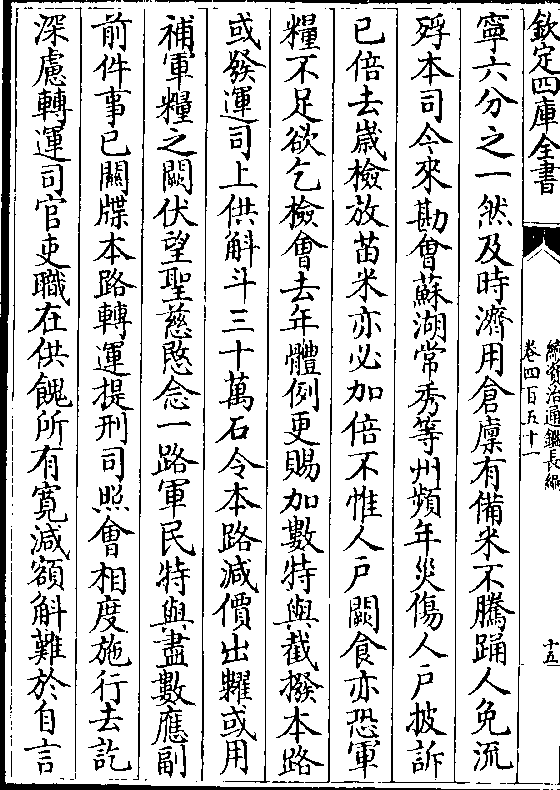 欽定四庫全書
續資治通鑑長編
卷四百五十一
十五
寧六分之一然及時濟用倉廪有備米不騰踊人免流
殍本司今來勘會蘇湖常秀等州頻年災傷人戸披訴
已倍去嵗檢放苗米亦必加倍不惟人戸闕食亦恐軍
糧不足欲乞檢會去年體例更賜加數特與截撥本路
或發運司上供斛斗三十萬石令本路減價出糶或用
補軍糧之闕伏望聖慈愍念一路軍民特與盡數應副
前件事已關牒本路轉運提刑司照會相度施行去訖
深慮轉運司官吏職在供餽所有寛減額斛難於自言